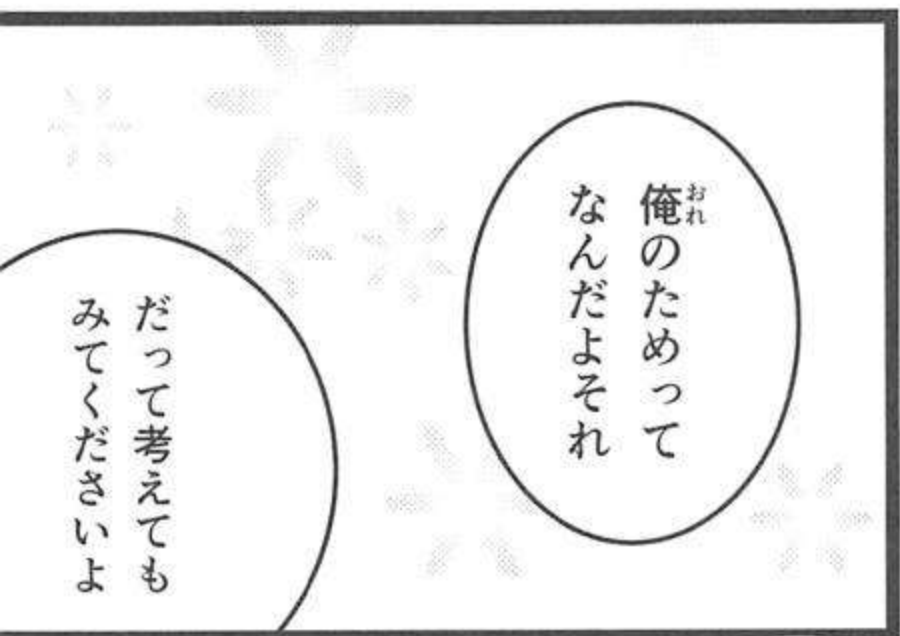 俺のためって
なんだよそれ
だって考えても
みてくださいよ